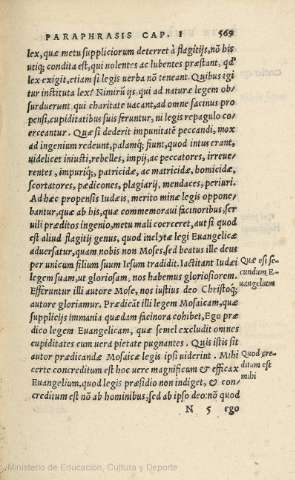 PARAPHRASIS CAP. I 569
lex, quæ metu suppliciorum deterret à flagitijs, nō bis
utiq; condita est, qui nolentes ac lubentes præstant, qd'
lex exigit, etiam si legis uerba nō teneant. Quibus igi
tur instituta lex? Nimirū ijs, qui ad naturæ legem ob/
surduerunt, qui charitate uacant, ad omne facinus pro
pensi, cupiditatibus suis feruntur, ni legis repagulo co
erceantur. Quæ si dederit impunitatē peccandi, mox
ad ingenium redeunt, palamq; fiunt, quod intus erant,
uidelicet iniusti, rebelles, impij, ac peccatores, irreue/
rentes, impuriq;, patricidæ, ac matricidæ, homicidæ,
scortatores, pædicones, plagiarij, mendaces, periuri.
Ad hæc propensis Iudæis, meritò minæ legis oppone/
bantur, quæ ab his, quæ commemoraui facinoribus ser
uili præditos ingenio, metu mali coerceret, aut si quod
est aliud flagitij genus, quod inclytæ legi Euangelicæ
aduersatur, quam nobis non Moses, sed beatus ille deus
per unicum filium suum Iesum tradidit. Iactitant Iudæi
legem suam, ut gloriosam, nos habemus gloriosiorem.
Efferuntur illi autore Mose, nos iustius deo Christoq;
autore gloriamur. Prædicāt illi legem Mosaicam, quæ
supplicijs immania quædam facinora cohibet, Ego præ
dico legem Euangelicam, quæ semel excludit omnes
cupiditates cum uera pietate pugnantes. Quis istis sit
autor prædicandæ Mosaicæ legis ipsi uiderint. Mihi
certe concreditum est hoc uere magnificum & efficax
Euangelium, quod legis præsidio non indiget, & con/
creditum est nō ab hominibus, sed ab ipso deo: nō quod
Quæ est se/
cundum E/
uangelium
Quod cre/
ditam est
mihi
N 5 ergo
Ministerio de Educación, Cultura y Deporte